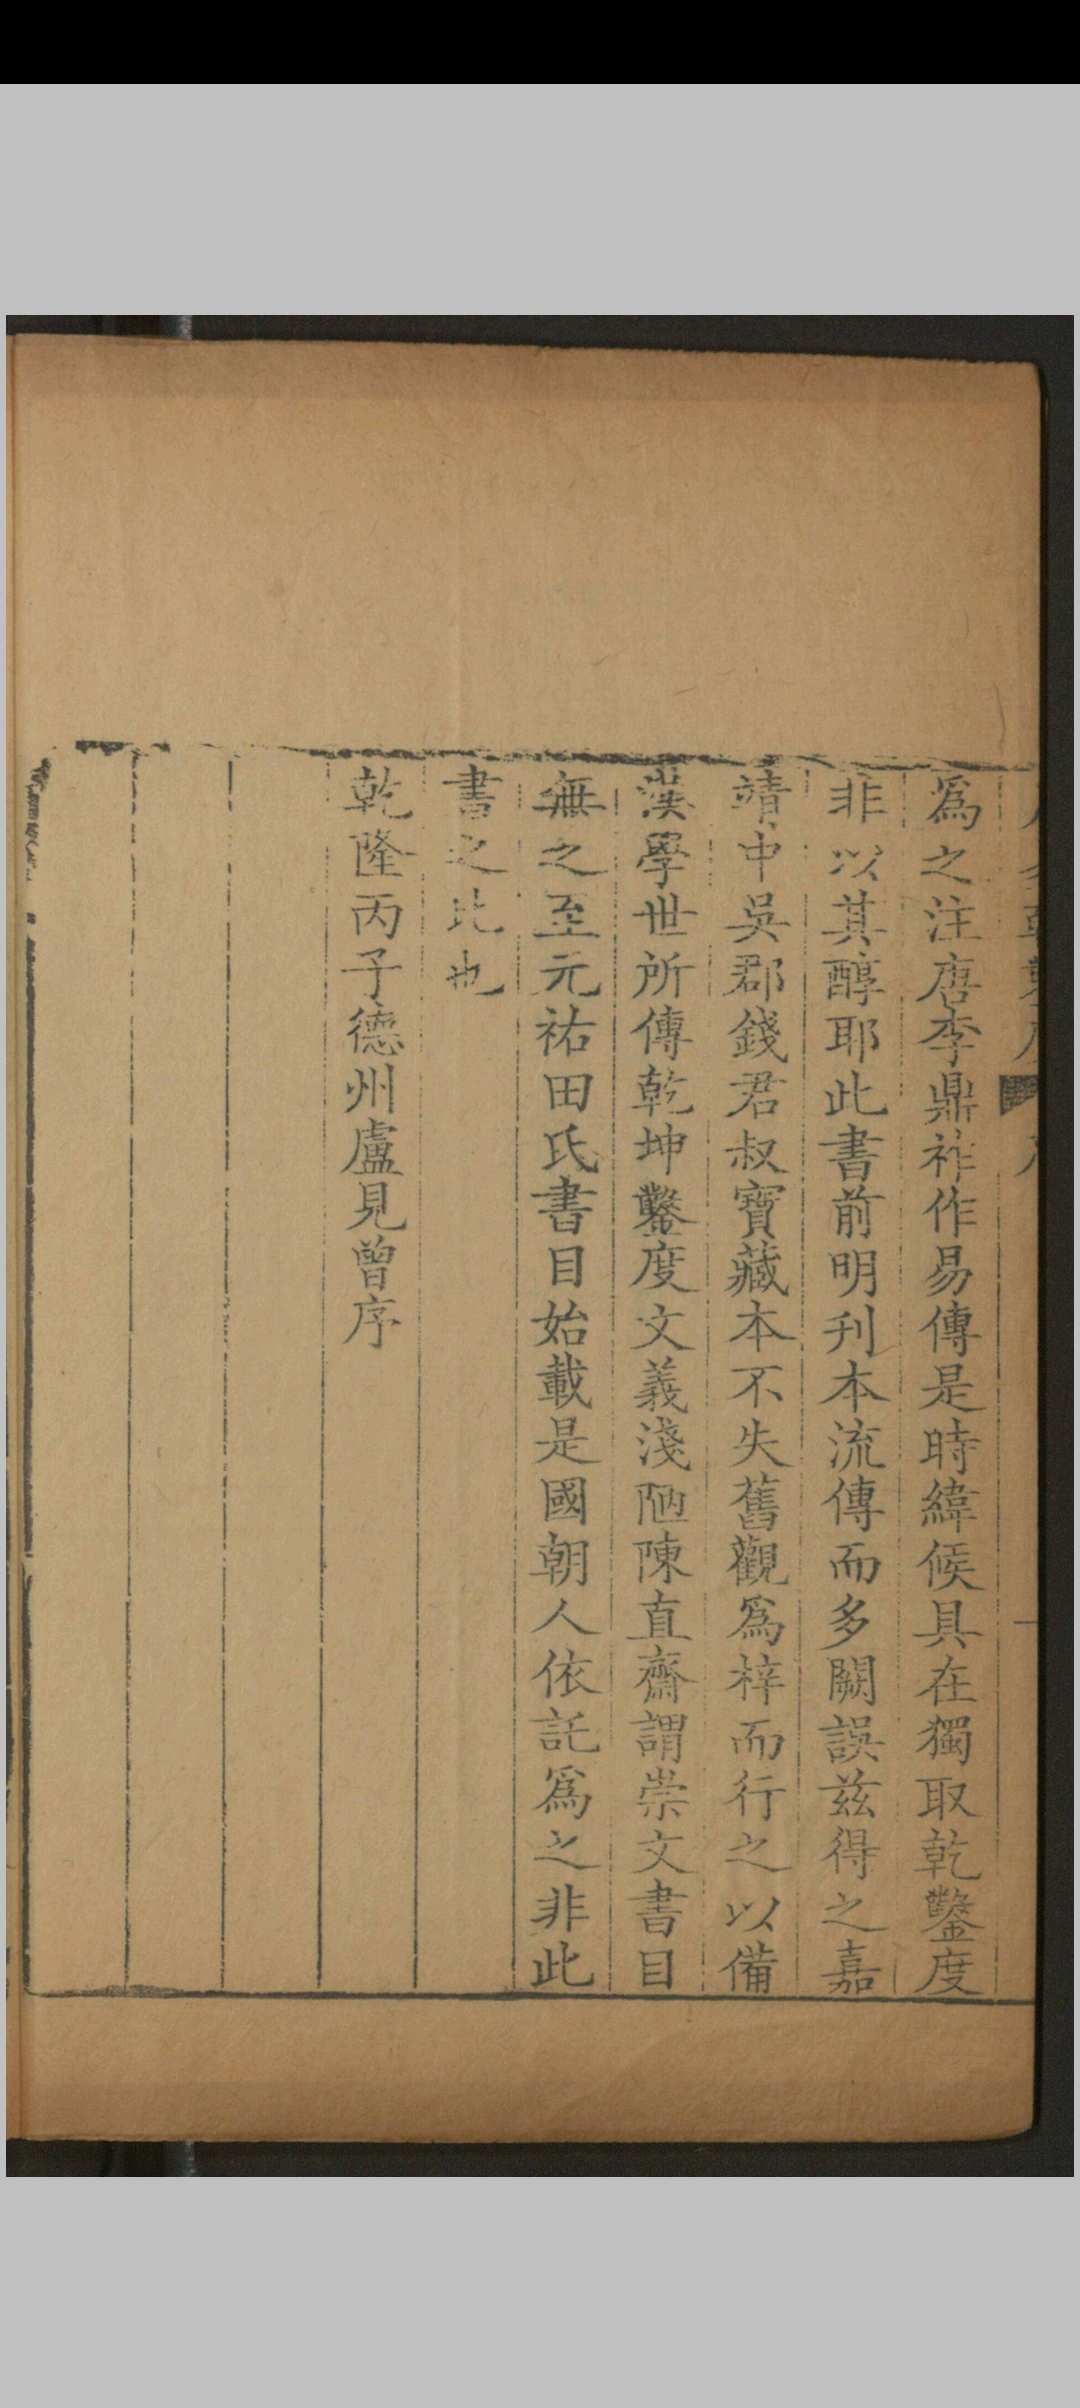 爲之注唐李鼎祚作易傳是時緯候具在獨取乾鑿度
非以其醇耶此書前明刊本流傳而多闕誤兹得之嘉
靖中吳郡錢君叔寶藏本不失舊觀爲梓而行之以備
漢學世所傳乾坤鑿度文義淺陋陳直齋謂崇文書目
無之至元祐田氏書目始載是國朝人依託爲之非此
書之比也
乾隆丙子德州盧見曾序